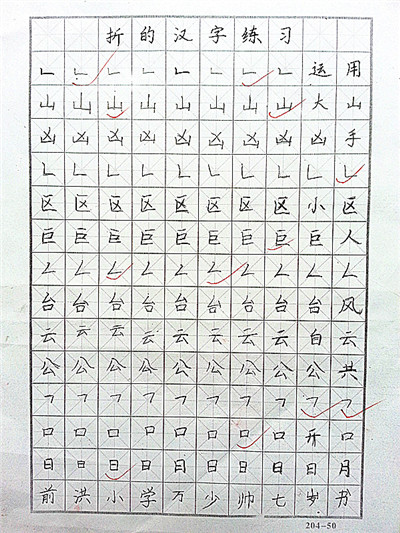 折的汉字练习
𠃊𠃊𠃊𠃊𠃊𠃊𠃊𠃊运用
山山山山山山山山大山
凶凶凶凶凶凶凶凶凶手
𠃊𠃊𠃊𠃊𠃊𠃊𠃊𠃊𠃊𠃊
区区区区区区区区小区
巨巨巨巨巨巨巨巨巨人
𠃋𠃋𠃋𠃋𠃋𠃋𠃋𠃋𠃋𠃋
台台台台台台台台台风
云云云云云云云云白云
公公公公公公公公公共
𠃍𠃍𠃍𠃍𠃍𠃍𠃍𠃍𠃍𠃍
口口口口口口口口开口
日日日日日日日日日月
前洪小学万少帅七岁书
204-50